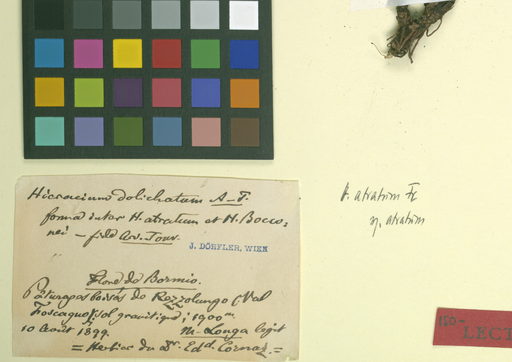 Hieracium dolichatum A-T.
forma inter H. atratum et H. Bocco,
nei – fide Arv. Touv.
J. DÖRFLER, WIEN
Flore de Bormio.
Pâturages boisés de Rezzolungo (Val
Foscagno) sol granitique; 1900 m.
10 Août 1899. M. Longa legit
= Herbier du Dr. Edd. Cornaz. =
h. atratum Fr
η. atratum
LECT